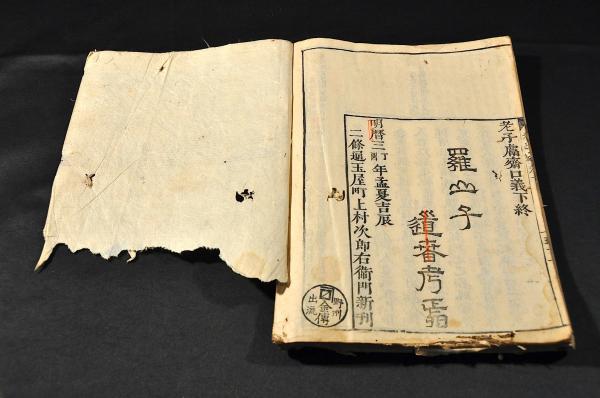 老子鬳齋口義下終
羅山子
道春考
明暦三丁酉年孟夏吉辰
二條通玉屋町上村次郎右衛門新刊
野州
金傳
出流